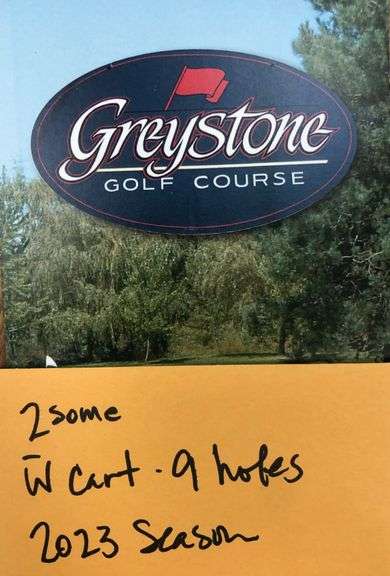 Greystone
GOLF COURSE
2some
w̄ cart · 9 holes
2023 Season